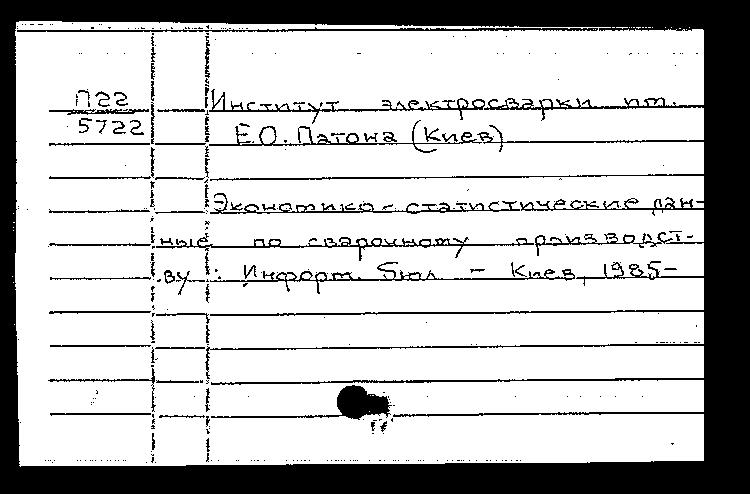 П22
5722
Институт электросварки им.
Е.О. Патона (Киев)
Экономико-статистические дан-
ные по сварочному производст-
ву : Информ. бюл. - Киев, 1985-